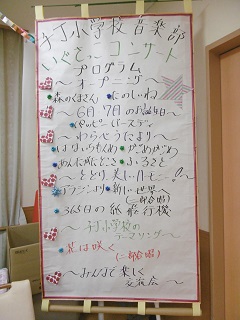 子丁小学校音楽部
いぐさっ子コンサート
プログラム
～オープニング～
森のくまさん たのしいね
～6月7月のお誕生日～
ハッピーバースデー
～わらべうたより～
はないちもんめ かごめかごめ
あんたがたどこさ ふるさと
～とどけ、美しいハーモニー!!～
新しい世界へ
(二部合唱)
365日の紙飛行機
～子丁小学校の
テーマソング～
花は咲く
(二部合唱)
～みんなで楽しく
交流会～